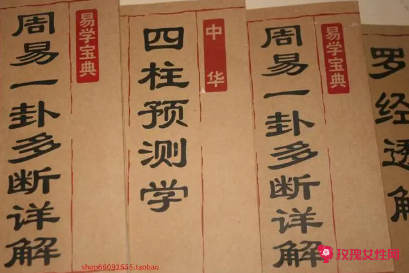 易学宝典
周易一卦多断详解
中华
四柱预测学
易学宝典
周易一卦多断详解
罗经透解
shop66091535.taobao
玫瑰女性网